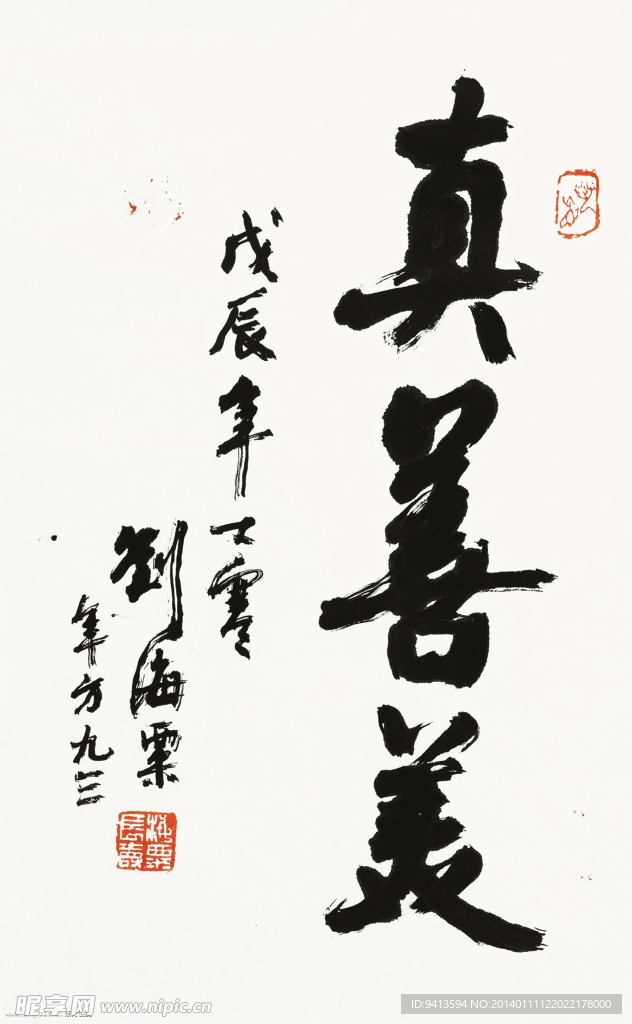 真善美
戊辰年大雪
劉海粟
年方九三
海粟長壽
昵享网 www.nipic.cn
ID:9413594 NO:20140111122022178000